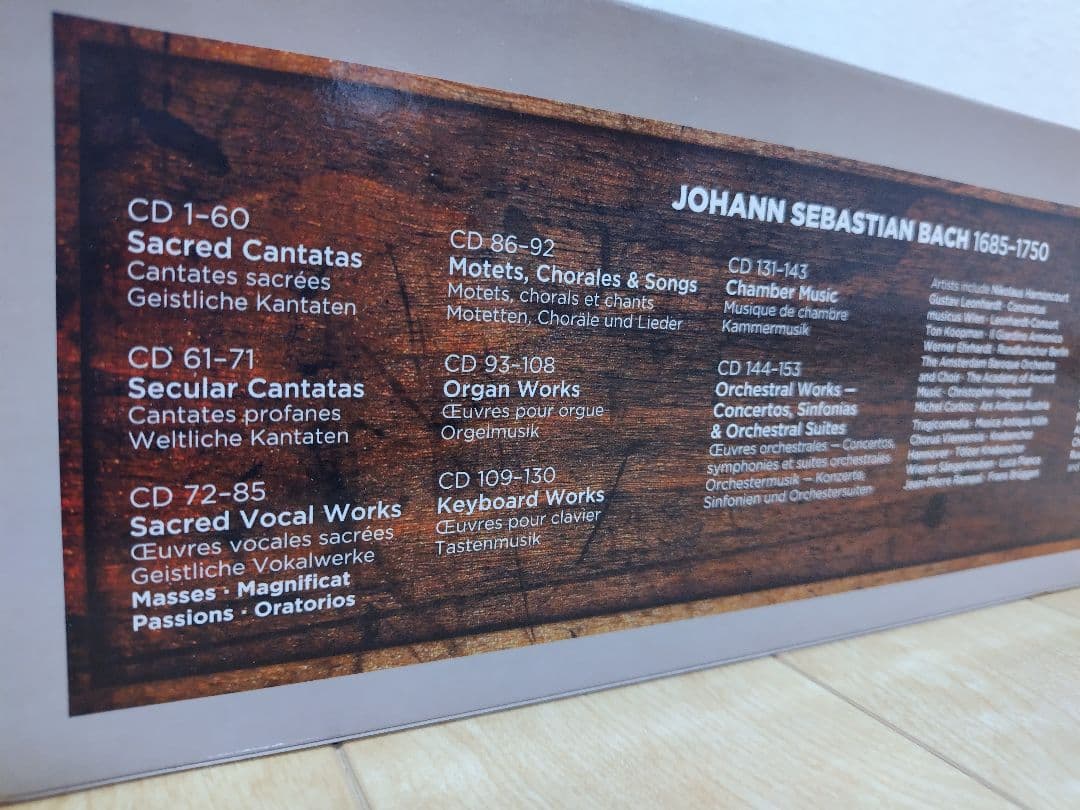 JOHANN SEBASTIAN BACH 1685–1750
CD 1–60
Sacred Cantatas
Cantates sacrées
Geistliche Kantaten
CD 61–71
Secular Cantatas
Cantates profanes
Weltliche Kantaten
CD 72–85
Sacred Vocal Works
Œuvres vocales sacrées
Geistliche Vokalwerke
Masses · Magnificat
Passions · Oratorios
CD 86–92
Motets, Chorales & Songs
Motets, chorals et chants
Motetten, Choräle und Lieder
CD 93–108
Organ Works
Œuvres pour orgue
Orgelmusik
CD 109–130
Keyboard Works
Œuvres pour clavier
Tastenmusik
CD 131–143
Chamber Music
Musique de chambre
Kammermusik
CD 144–153
Orchestral Works –
Concertos, Sinfonias
& Orchestral Suites
Œuvres orchestrales – Concertos,
symphonies et suites orchestrales
Orchestermusik – Konzerte,
Sinfonien und Orchestersuiten
Artists include Nikolaus Harnoncourt
Gustav Leonhardt · Concentus
musicus Wien · Leonhardt-Consort
Ton Koopman · Il Giardino Armonico
Werner Ehrhardt
The Amsterdam Baroque Orchestra
and Choir · The Academy of Ancient
Music · Christopher Hogwood
Michel Corboz · Ars Antiqua Austria
Tragicomedia · Musica Antiqua Köln
Chorus Viennensis
Hannover · Tölzer Knabenchor
Wiener Sängerknaben
Jean-Pierre Rampal · Frans Brüggen